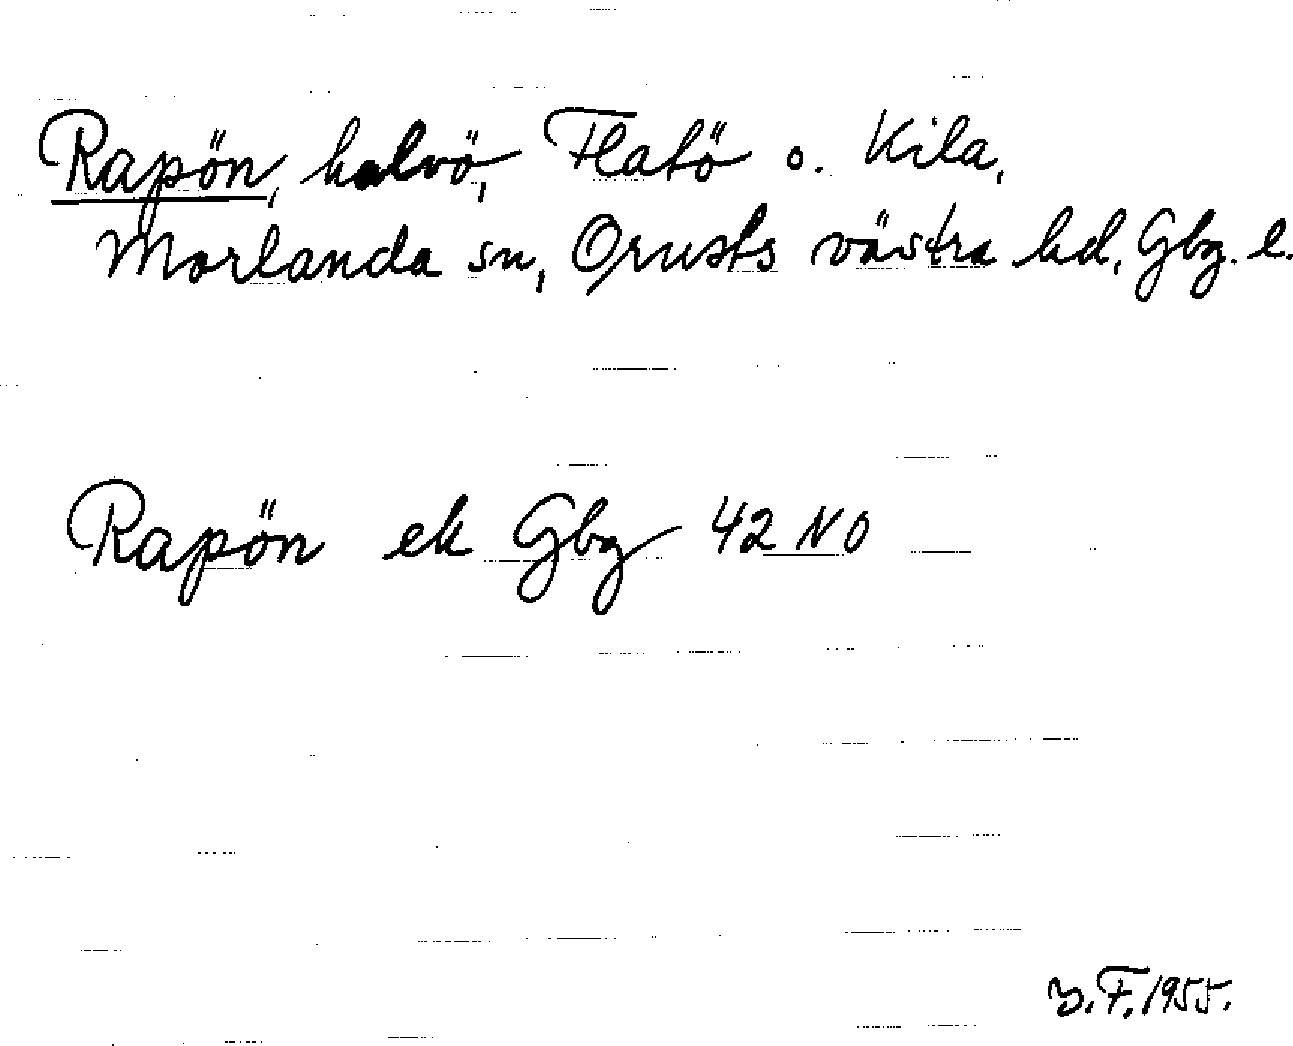 Rapön, halvö, Flatö o. Kila,
Morlanda sn, Orusts västra hd, Gbg. l.
Rapön ek Gbg 42 NO
F. 1955.